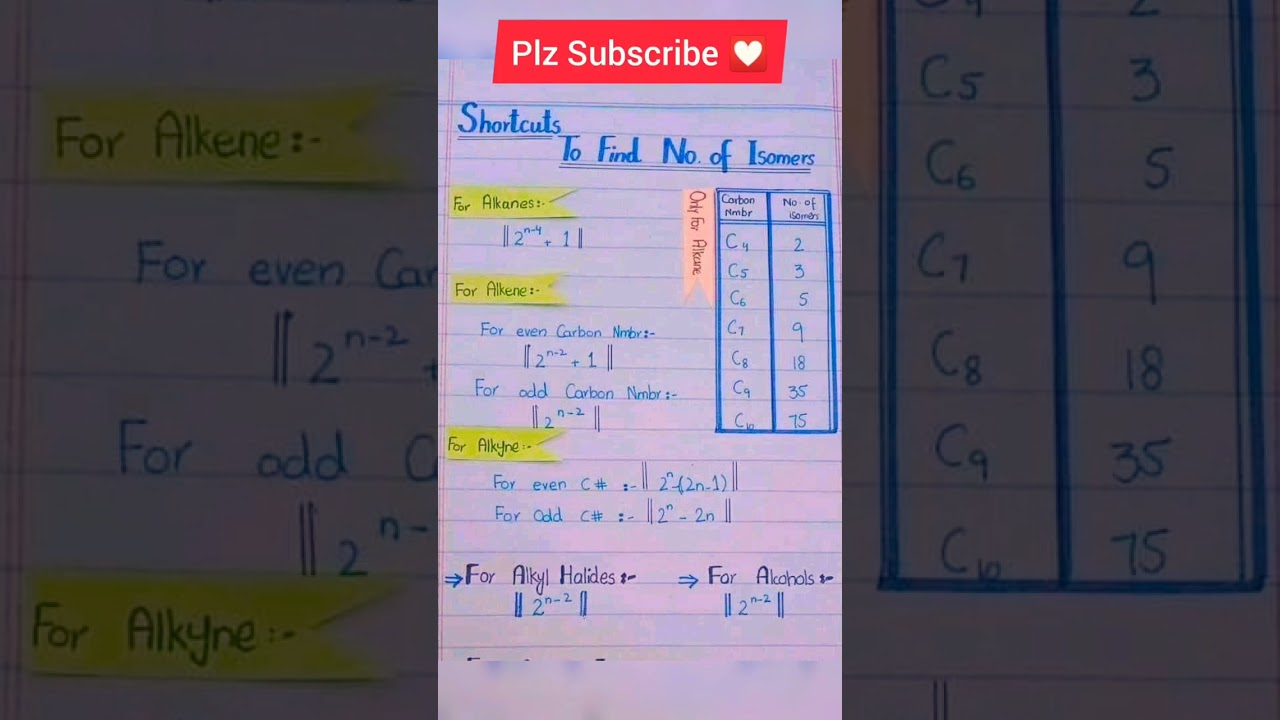 Plz Subscribe
Shortcuts
To Find No. of Isomers
For Alkanes:-
|| 2^(n-4) + 1 ||
For Alkene:-
For even Carbon Nmbr:-
|| 2^(n-2) + 1 ||
For odd Carbon Nmbr:-
|| 2^(n-2) ||
For Alkyne:-
For even C# :- || 2^n-(2n-1) ||
For odd C# :- || 2^n - 2n ||
⇒ For Alkyl Halides:-
|| 2^(n-2) ||
⇒ For Alcohols:-
|| 2^(n-2) ||
Only For Alkane
Carbon Nmbr No. of isomers
C4 2
C5 3
C6 5
C7 9
C8 18
C9 35
C10 75
For Alkene:-
For even Car
|| 2^(n-2)
For odd C
|| 2^(n-
For Alkyne:-
2
C5 3
C6 5
C7 9
C8 18
C9 35
C10 75